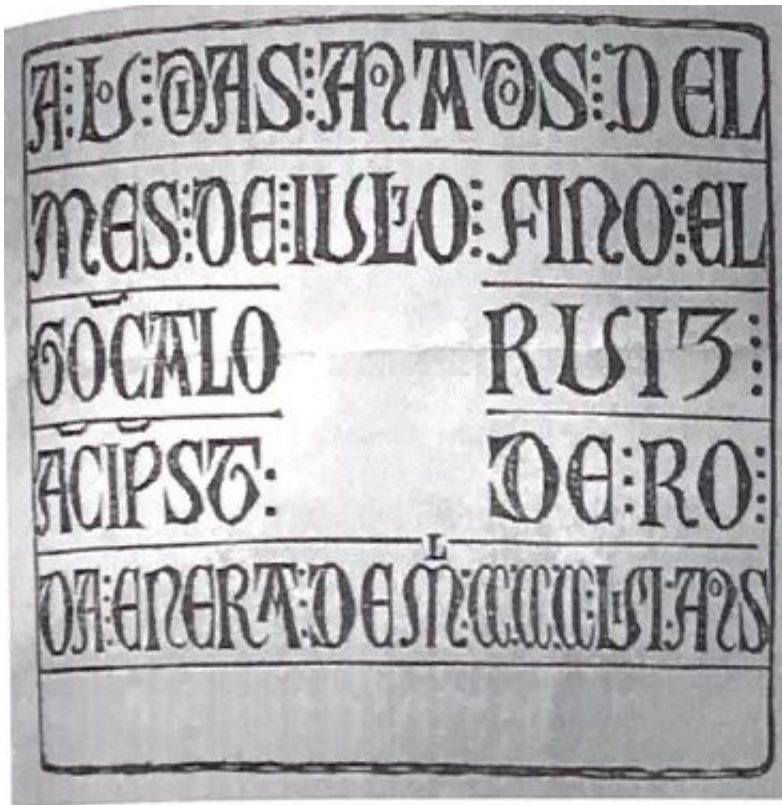 A : LOS : DIAS : ANOTADOS : DEL
MES : DE : IULIO : FINO : EL
GOCALO RUIZ :
ACIPST : DE : RO :
L
DA : EN ERA : DE M : CCC : ANOS